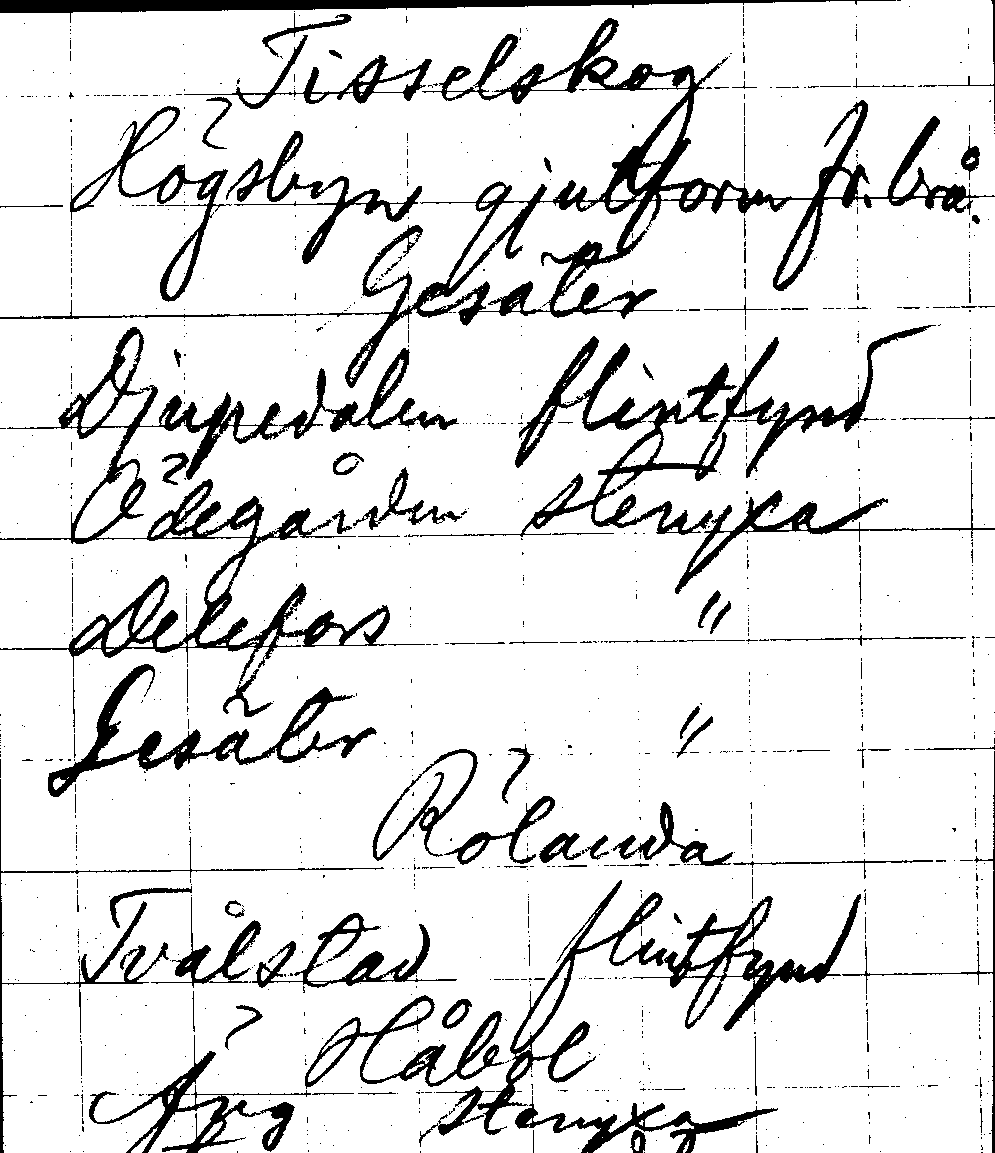 Tisselskog
Högsbyn gjutform fr. brå.
Gesäter
Djupedalen flintfynd
Ödegården stenyxa
Delefors "
Gesäter "
Rölanda
Tvålstad flintfynd
Håbol
stenyxa